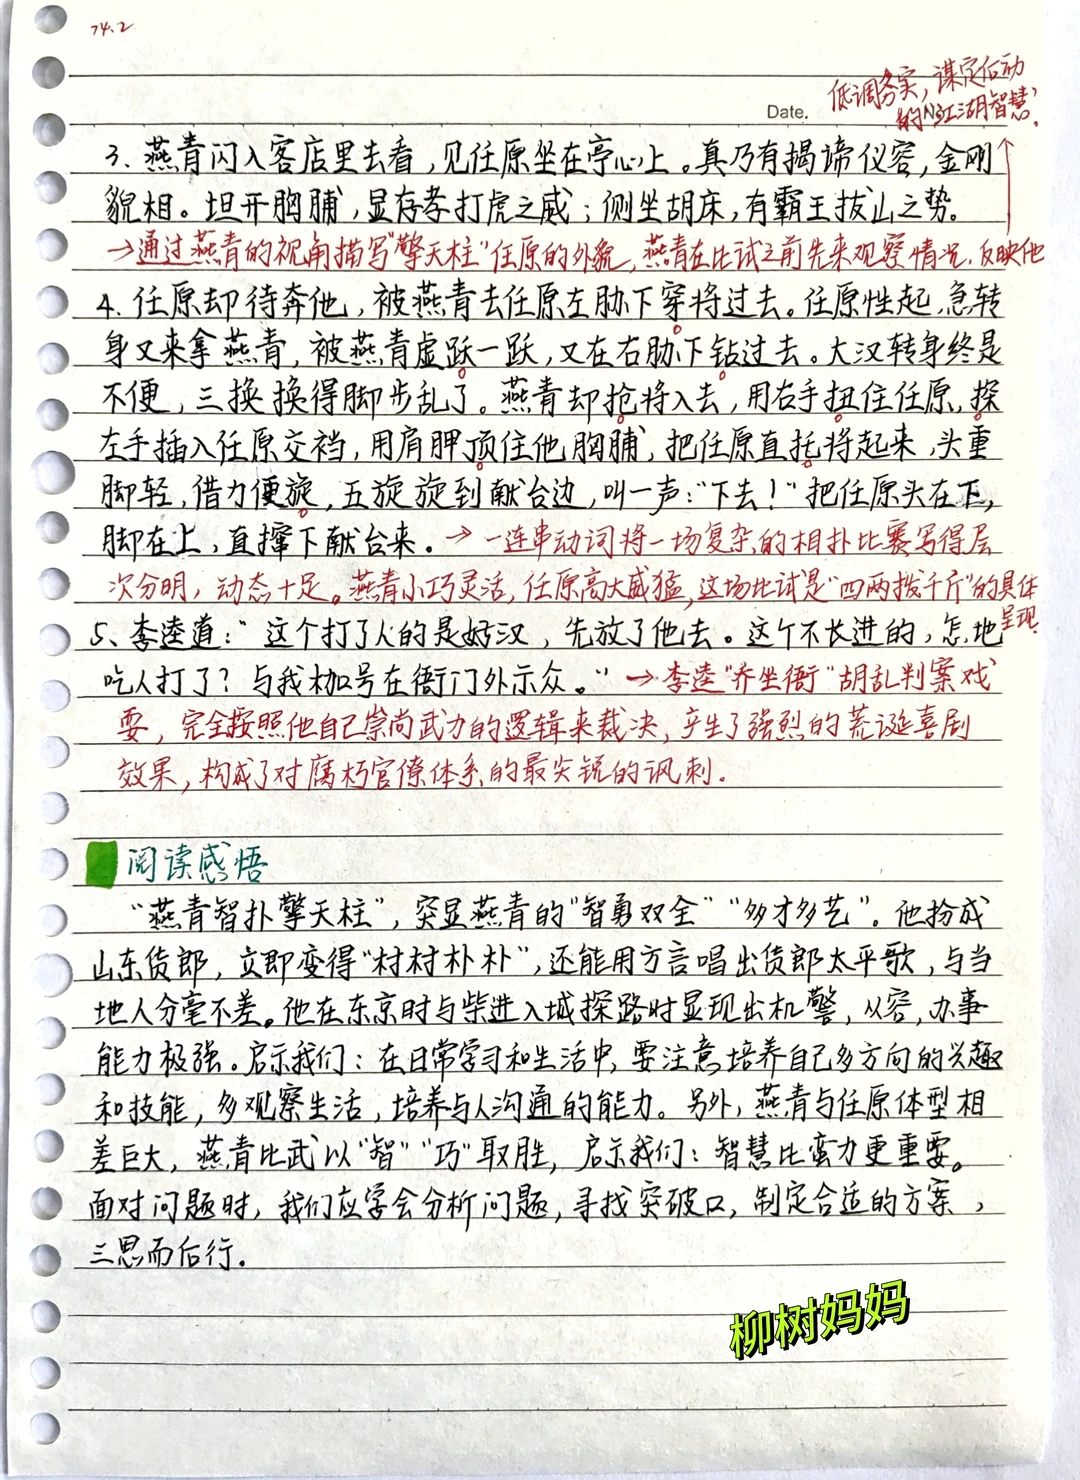 74.2
低调务实，谋定后动
Date.
的江湖智慧.
3. 燕青闪入客店里去看，见任原坐在亭心上。真乃有揭谛仪容，金刚
貌相。坦开胸脯，显存孝打虎之威；侧坐胡床，有霸王拔山之势。
→通过燕青的视角描写"擎天柱"任原的外貌，燕青在比试之前先来观察情况，反映他
4. 任原却待奔他，被燕青去任原左胁下穿将过去。任原性起，急转
身又来拿燕青，被燕青虚跃一跃，又在右胁下钻过去。大汉转身终是
不便，三换换得脚步乱了。燕青却抢将入去，用右手扭住任原，探
左手插入任原交裆，用肩胛顶住他胸脯，把任原直托将起来，头重
脚轻，借力便旋，五旋旋到献台边，叫一声："下去！"把任原头在下，
脚在上，直撺下献台来。→一连串动词将一场复杂的相扑比赛写得层
次分明，动态十足。燕青小巧灵活，任原高大威猛，这场比试是"四两拨千斤"的具体
呈现.
5、李逵道："这个打了人的是好汉，先放了他去。这个不长进的，怎地
吃人打了？与我枷号在衙门外示众。"→李逵"乔坐衙"胡乱判案戏
耍，完全按照他自己崇尚武力的逻辑来裁决，产生了强烈的荒诞喜剧
效果，构成了对腐朽官僚体系的最尖锐的讽刺.
阅读感悟
"燕青智扑擎天柱"，突显燕青的"智勇双全""多才多艺"。他扮成
山东货郎，立即变得"村村朴朴"，还能用方言唱出货郎太平歌，与当
地人分毫不差。他在东京时与柴进入城探路时显现出机警，从容，办事
能力极强。启示我们：在日常学习和生活中，要注意培养自己多方向的兴趣
和技能，多观察生活，培养与人沟通的能力。另外，燕青与任原体型相
差巨大，燕青比武以"智""巧"取胜，启示我们：智慧比蛮力更重要。
面对问题时，我们应学会分析问题，寻找突破口，制定合适的方案，
三思而后行.
柳树妈妈